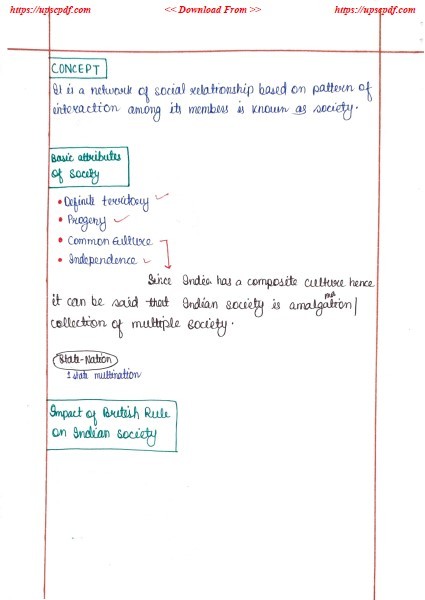 https://upscpdf.com << Download From >> https://upscpdf.com
CONCEPT
It is a network of social relationship based on pattern of
interaction among its members is known as society.
Basic attributes
of society
• Definite territory ✓
• Progeny ✓
• Common Culture
• Independence ✓
Since India has a composite culture hence
it can be said that Indian society is amalgmation/
collection of multiple society.
State-Nation
1 state multination
Impact of British Rule
on Indian society